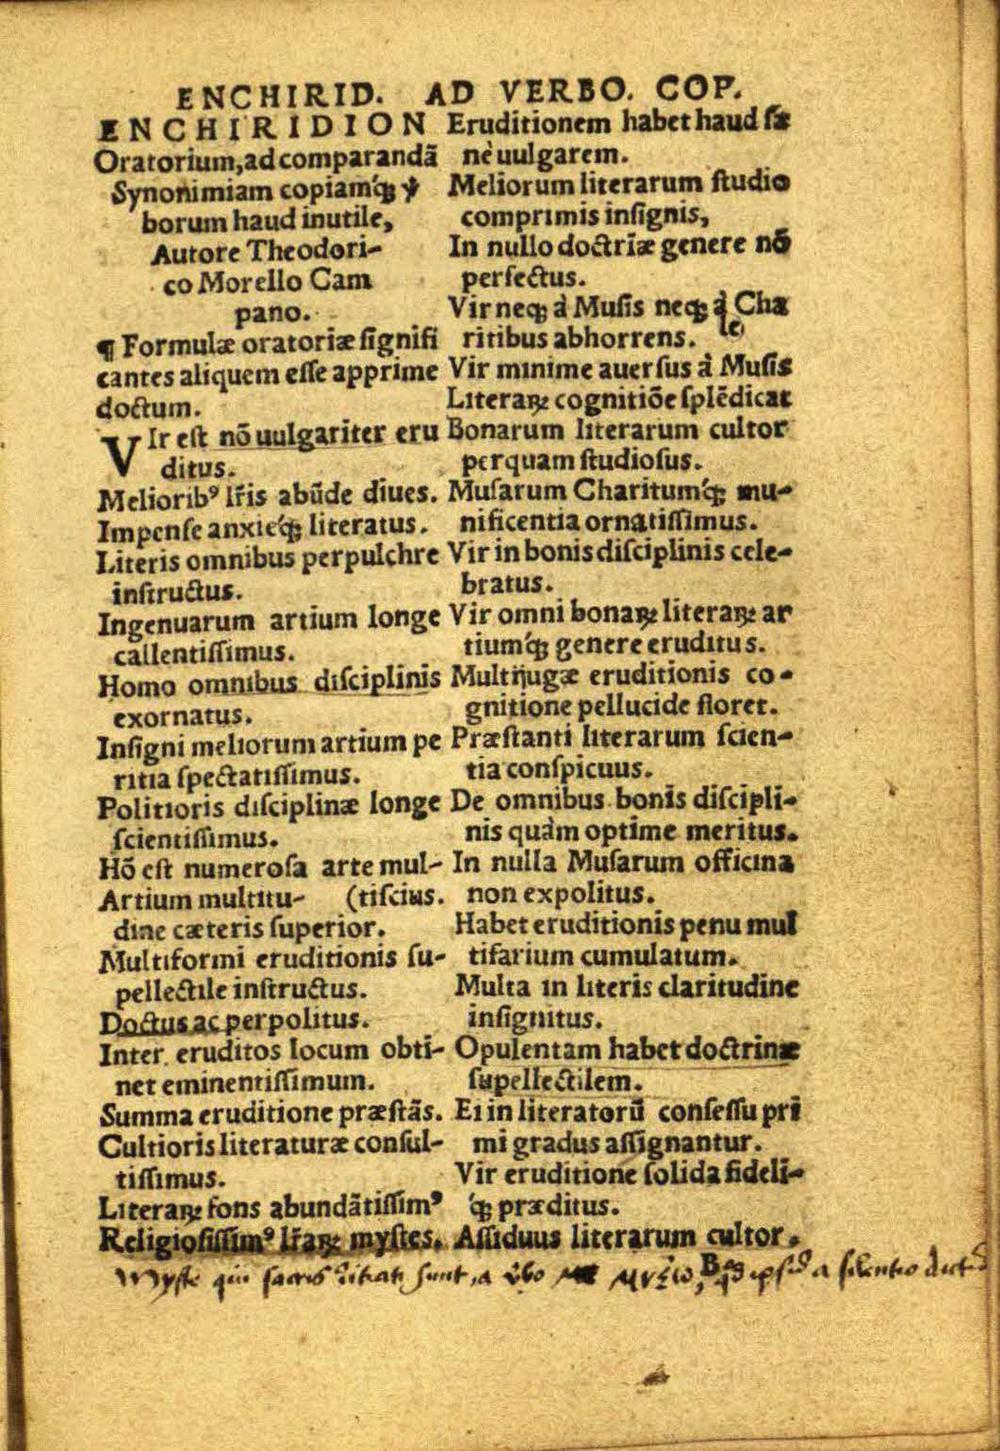 ENCHIRID. AD VERBO. COP.
ENCHIRIDION
Oratorium,ad comparandã
Synonimiam copiamq́ꝫ ꝟ
borum haud inutile,
Autore Theodori-
co Morello Cam
pano.
¶ Formulæ oratoriæ signifi
cantes aliquem esse apprime
doctum.
VIr est nõ uulgariter eru
ditus.
Meliorib⁹ lr̃is abũde diues.
Impense anxieq́ꝫ literatus.
Literis omnibus perpulchre
instructus.
Ingenuarum artium longe
callentissimus.
Homo omnibus disciplinis
exornatus.
Insigni meliorum artium pe
ritia spectatissimus.
Politioris disciplinæ longe
scientissimus.
Hõ est numerosa arte mul-
Artium multitu- (tiscius.
dine cæteris superior.
Multiformi eruditionis su-
pellectile instructus.
Doctus ac perpolitus.
Inter eruditos locum obti-
net eminentissimum.
Summa eruditione præstãs.
Cultioris literaturæ consul-
tissimus.
Literaꝝ fons abundãtissim⁹
Religiosissim⁹ lr̃aꝝ mystes.
Eruditionem habet haud sa
nè uulgarem.
Meliorum literarum studio
comprimis insignis,
In nullo doctrĩæ genere nõ
perfectus.
Vir neqꝫ à Musis neqꝫ à Cha
ritibus abhorrens.
Vir minime auersus à Musis
Literaꝝ cognitiõe splẽdicat
Bonarum literarum cultor
perquam studiosus.
Musarum Charitumq́ꝫ mu-
nificentia ornatissimus.
Vir in bonis disciplinis cele-
bratus.
Vir omni bonaꝝ literaꝝ ar
tiumq́ꝫ genere eruditus.
Multijugæ eruditionis co-
gnitione pellucide floret.
Præstanti literarum scien-
tia conspicuus.
De omnibus bonis discipli-
nis quàm optime meritus.
In nulla Musarum officina
non expolitus.
Habet eruditionis penu mul
tifarium cumulatum.
Multa in literis claritudine
insignitus.
Opulentam habet doctrinæ
supellectilem.
Ei in literatorũ consessu pri
mi gradus assignantur.
Vir eruditione solida fideli-
q́ꝫ præditus.
Assiduus literarum cultor.
B
Mystę qui sacris sunt, a silentio